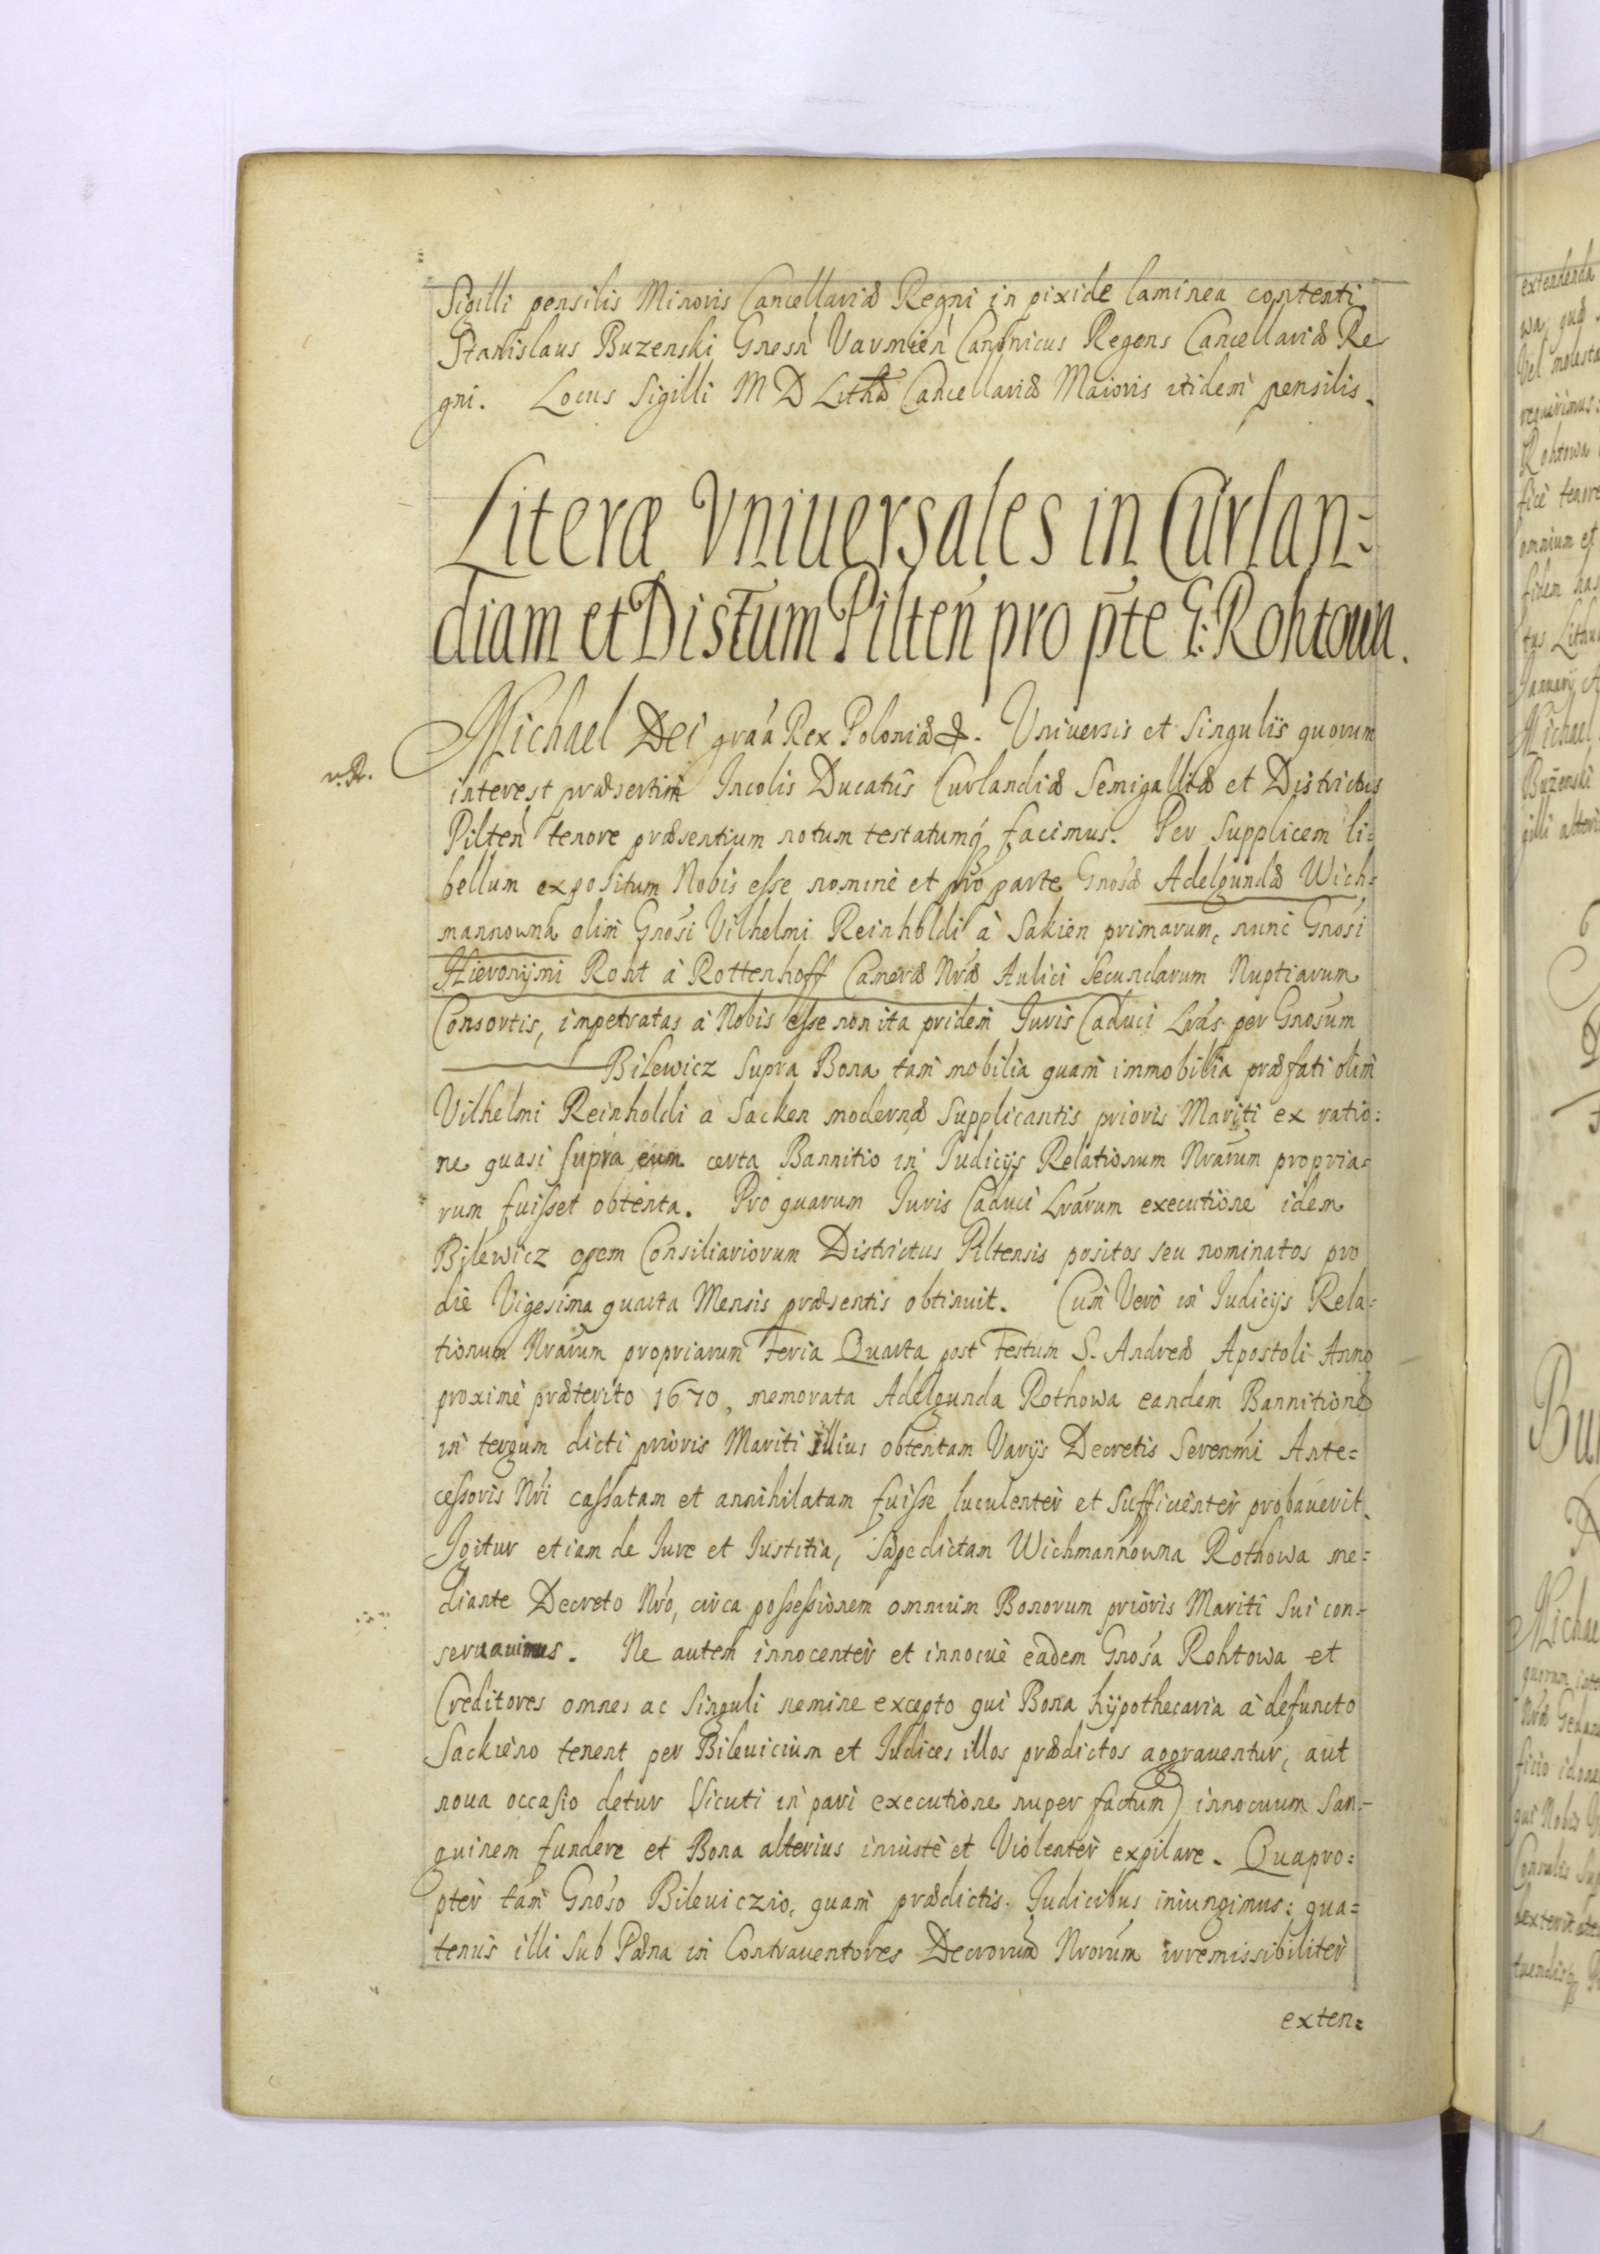 Sigilli pensilis Minoris Cancellariæ Regni in pixide laminea contenti
Stanislaus Buzenski Gnesn̄ Varmien̄ Canonicus Regens Cancellariæ Re
gni. Locus Sigilli M D Lithæ Cancellariæ Maioris itidem pensilis.
Literæ Vniuersales in Curlan=
diam et Distum Pilten̄ pro pte G: Rohtowa.
Michael Dei graá Rex Poloniæ &. Universis et Singulis quorum
interest præsertim Incolis Ducatûs Curlandiæ Semigalliæ et Districtus
Pilten̄ tenore præsentium notum testatumq́ facimus. Per Supplicem li=
bellum expositum Nobis esse nomine et pro parte Gnosæ Adelgundæ Wich=
mannowna olim Gnosi Vilhelmi Reinholdi à Sakien primarum, nunc Gnosi
Hieronijmi Roht à Rottenhoff Cameræ Nræ Aulici Secundarum Nuptiarum
Consortis, impetratas à Nobis esse non ita pridem Juris Caduci Lrás per Gnosum
Bilewicz Supra Bona tam mobilia quam immobilia præfati olim
Vilhelmi Reinholdi à Sacken modernæ Supplicantis prioris Mariti ex ratio=
ne quasi Supra eum certa Bannitio in Judicijs Relationum Nrarum propria=
rum fuisset obtenta. Pro quarum Juris Caduci Lrárum executione idem
Bilewicz opem Consiliariorum Districtus Piltensis positos seu nominatos pro
die Vigesima quarta Mensis præsentis obtinuit. Cum Verò in Judicijs Rela=
tionum Nrárum propriarum Feria Quarta post Festum S. Andreæ Apostoli Anno
proximè præterito 1670, memorata Adelgunda Rothowa eandem Bannitionē
in tergum dicti prioris Mariti illius obtentam Varijs Decretis Serenmi Ante=
cessoris Nri cassatam et annihilatam fuisse luculenter et Sufficienter probauerit.
Igitur etiam de Jure et Justitia, Sæpedictam Wichmannowna Rothowa me=
diante Decreto Nró, circa possessionem omnium Bonorum prioris Mariti Sui con=
seruauimus. Ne autem innocenter et innocuè eadem Gnosa Rohtowa et
Creditores omnes ac Singuli nemine excepto qui Bona hijpothecaria à defuncto
Sackieno tenent per Bileuicium et Judices illos prædictos aggrauentur, aut
noua occasio detur (Sicuti in pari executione nuper factum) innocuum San=
guinem fundere et Bona alterius iniustè et Violenter expilare. Quapro=
pter tam Gnóso Bileuiczio, quam prædictis Judicibus iniungimus: qua=
tenus illi Sub Pæna in Contrauentores Decrorum Nrorum irremissibiliter
exten=